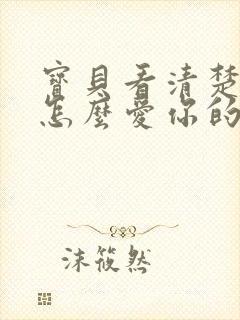 寶貝看清楚
怎麼愛你的
沫筱然